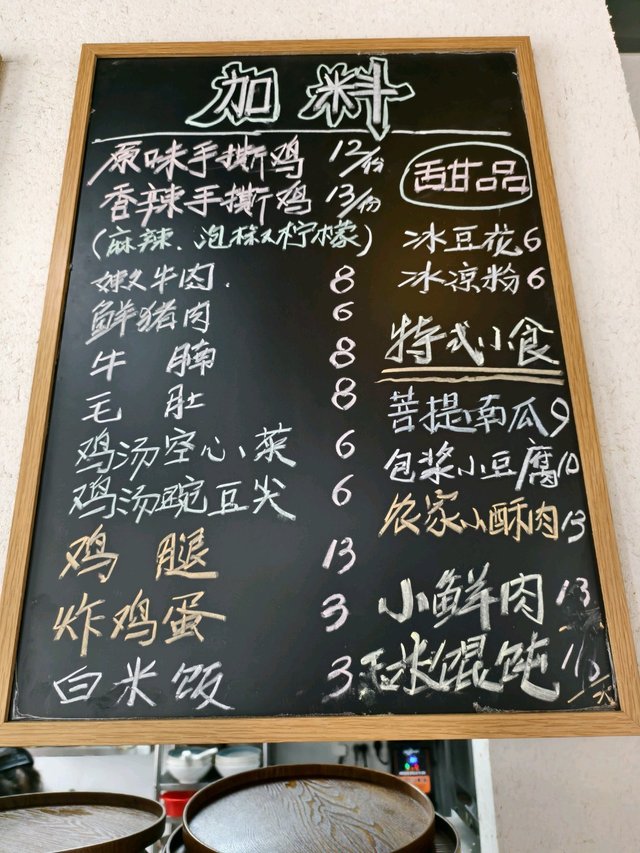 加料
原味手撕鸡 12/份
香辣手撕鸡 13/份
(麻辣、泡椒、柠檬)
嫩牛肉 8
鲜猪肉 6
牛腩 8
毛肚 8
鸡汤空心菜 6
鸡汤豌豆尖 6
鸡腿 13
炸鸡蛋 3
白米饭 3
甜品
冰豆花 6
冰凉粉 6
特式小食
菩提南瓜 9
包浆小豆腐 10
农家小酥肉 13
小鲜肉 13
玉米馄饨